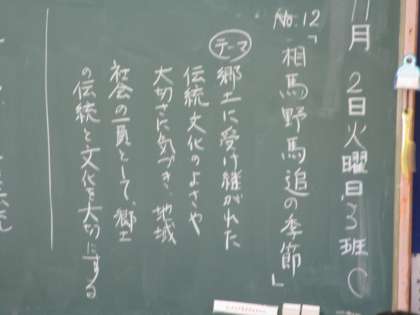 11月2日火曜日3班
No.12「相馬野馬追の季節」
テーマ
郷土に受け継がれた
伝統文化のよさや
大切さに気づき、地域
社会の一員として、郷土
の伝統と文化を大切にする